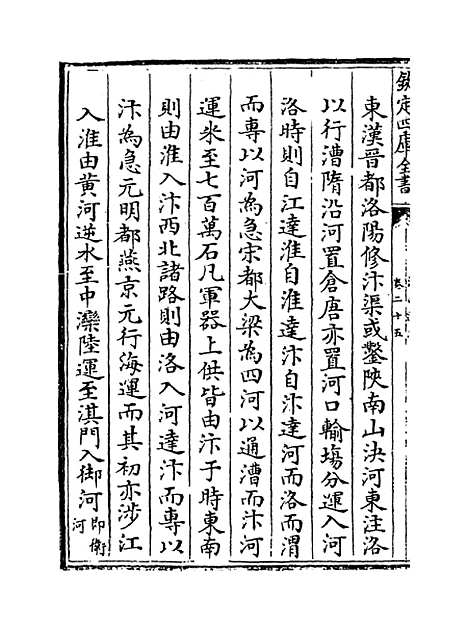 欽定四庫全書
卷二十五
東漢晉都洛陽修汴渠或鑿陜南山決河東注洛
以行漕隋沿河置倉唐亦置河口輸塲分運入河
洛時則自江達淮自淮達汴自汴達河而洛而渭
而專以河為急宋都大梁為四河以通漕而汴河
運米至七百萬石凡軍器上供皆由汴于時東南
則由淮入汴西北諸路則由洛入河達汴而專以
汴為急元明都燕京元行海運而其初亦涉江
入淮由黄河逆水至中灤陸運至淇門入御河即衛河